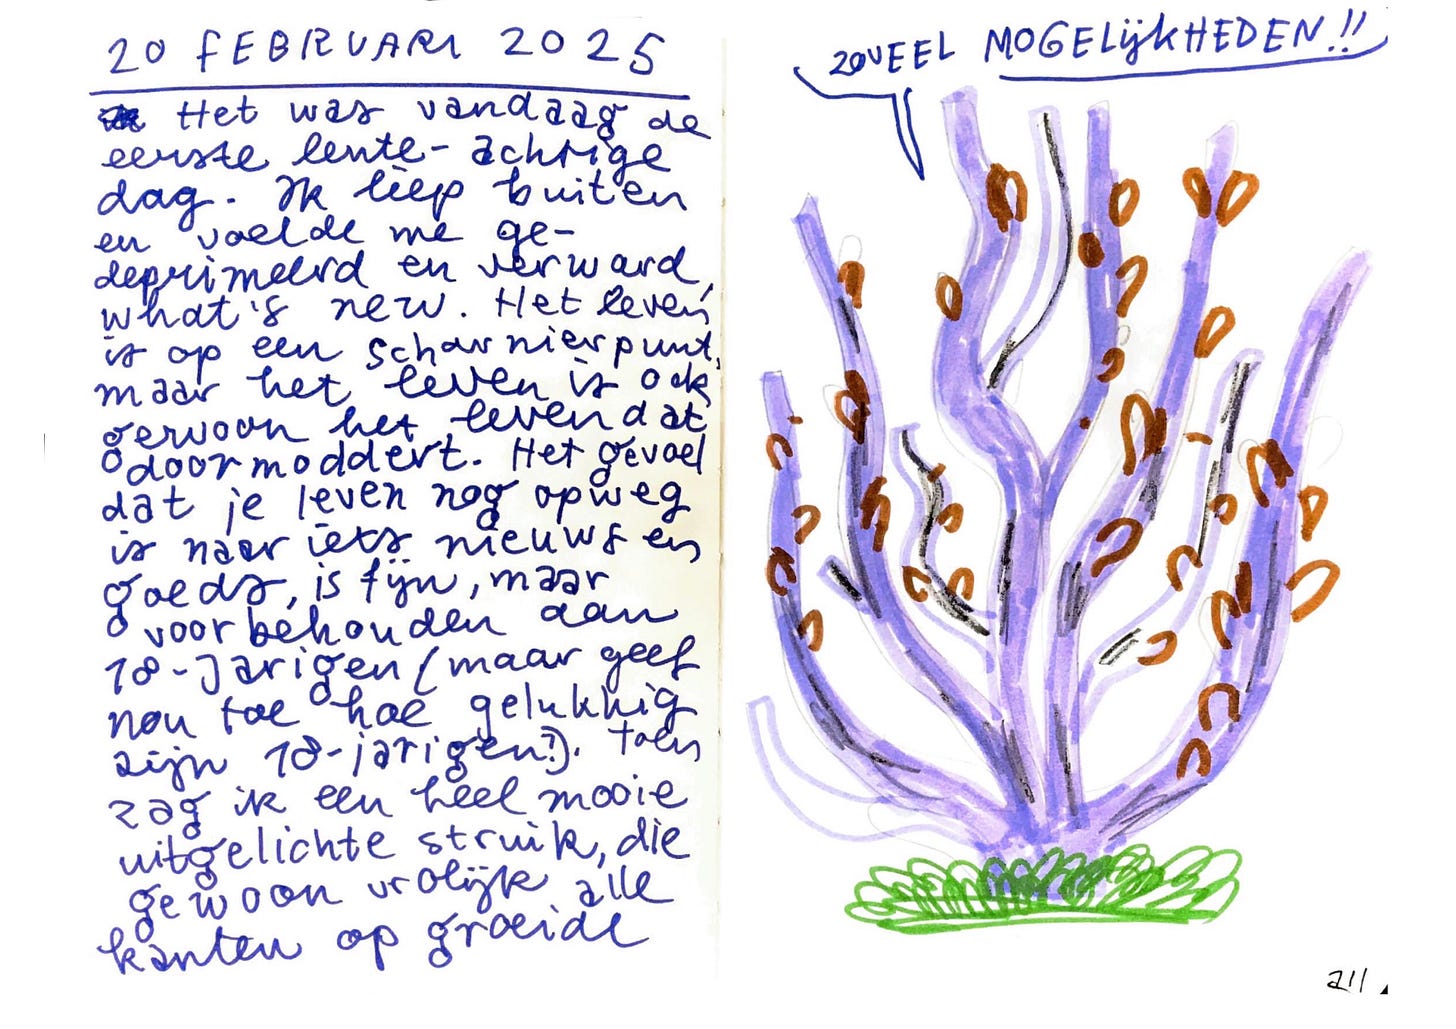 20 FEBRUARI 2025
Het was vandaag de
eerste lente-achtige
dag. Ik liep buiten
en voelde me ge-
deprimeerd en verward,
what's new. Het leven
is op een scharnierpunt,
maar het leven is ook
gewoon het leven dat
doormoddert. Het gevoel
dat je leven nog opweg
is naar iets nieuws en
goeds, is fijn, maar
voorbehouden aan
18-jarigen (maar geef
nou toe hoe gelukkig
zijn 18-jarigen?). Toen
zag ik een heel mooie
uitgelichte struik, die
gewoon vrolijk alle
kanten op groeide
ZOVEEL MOGELIJKHEDEN!!